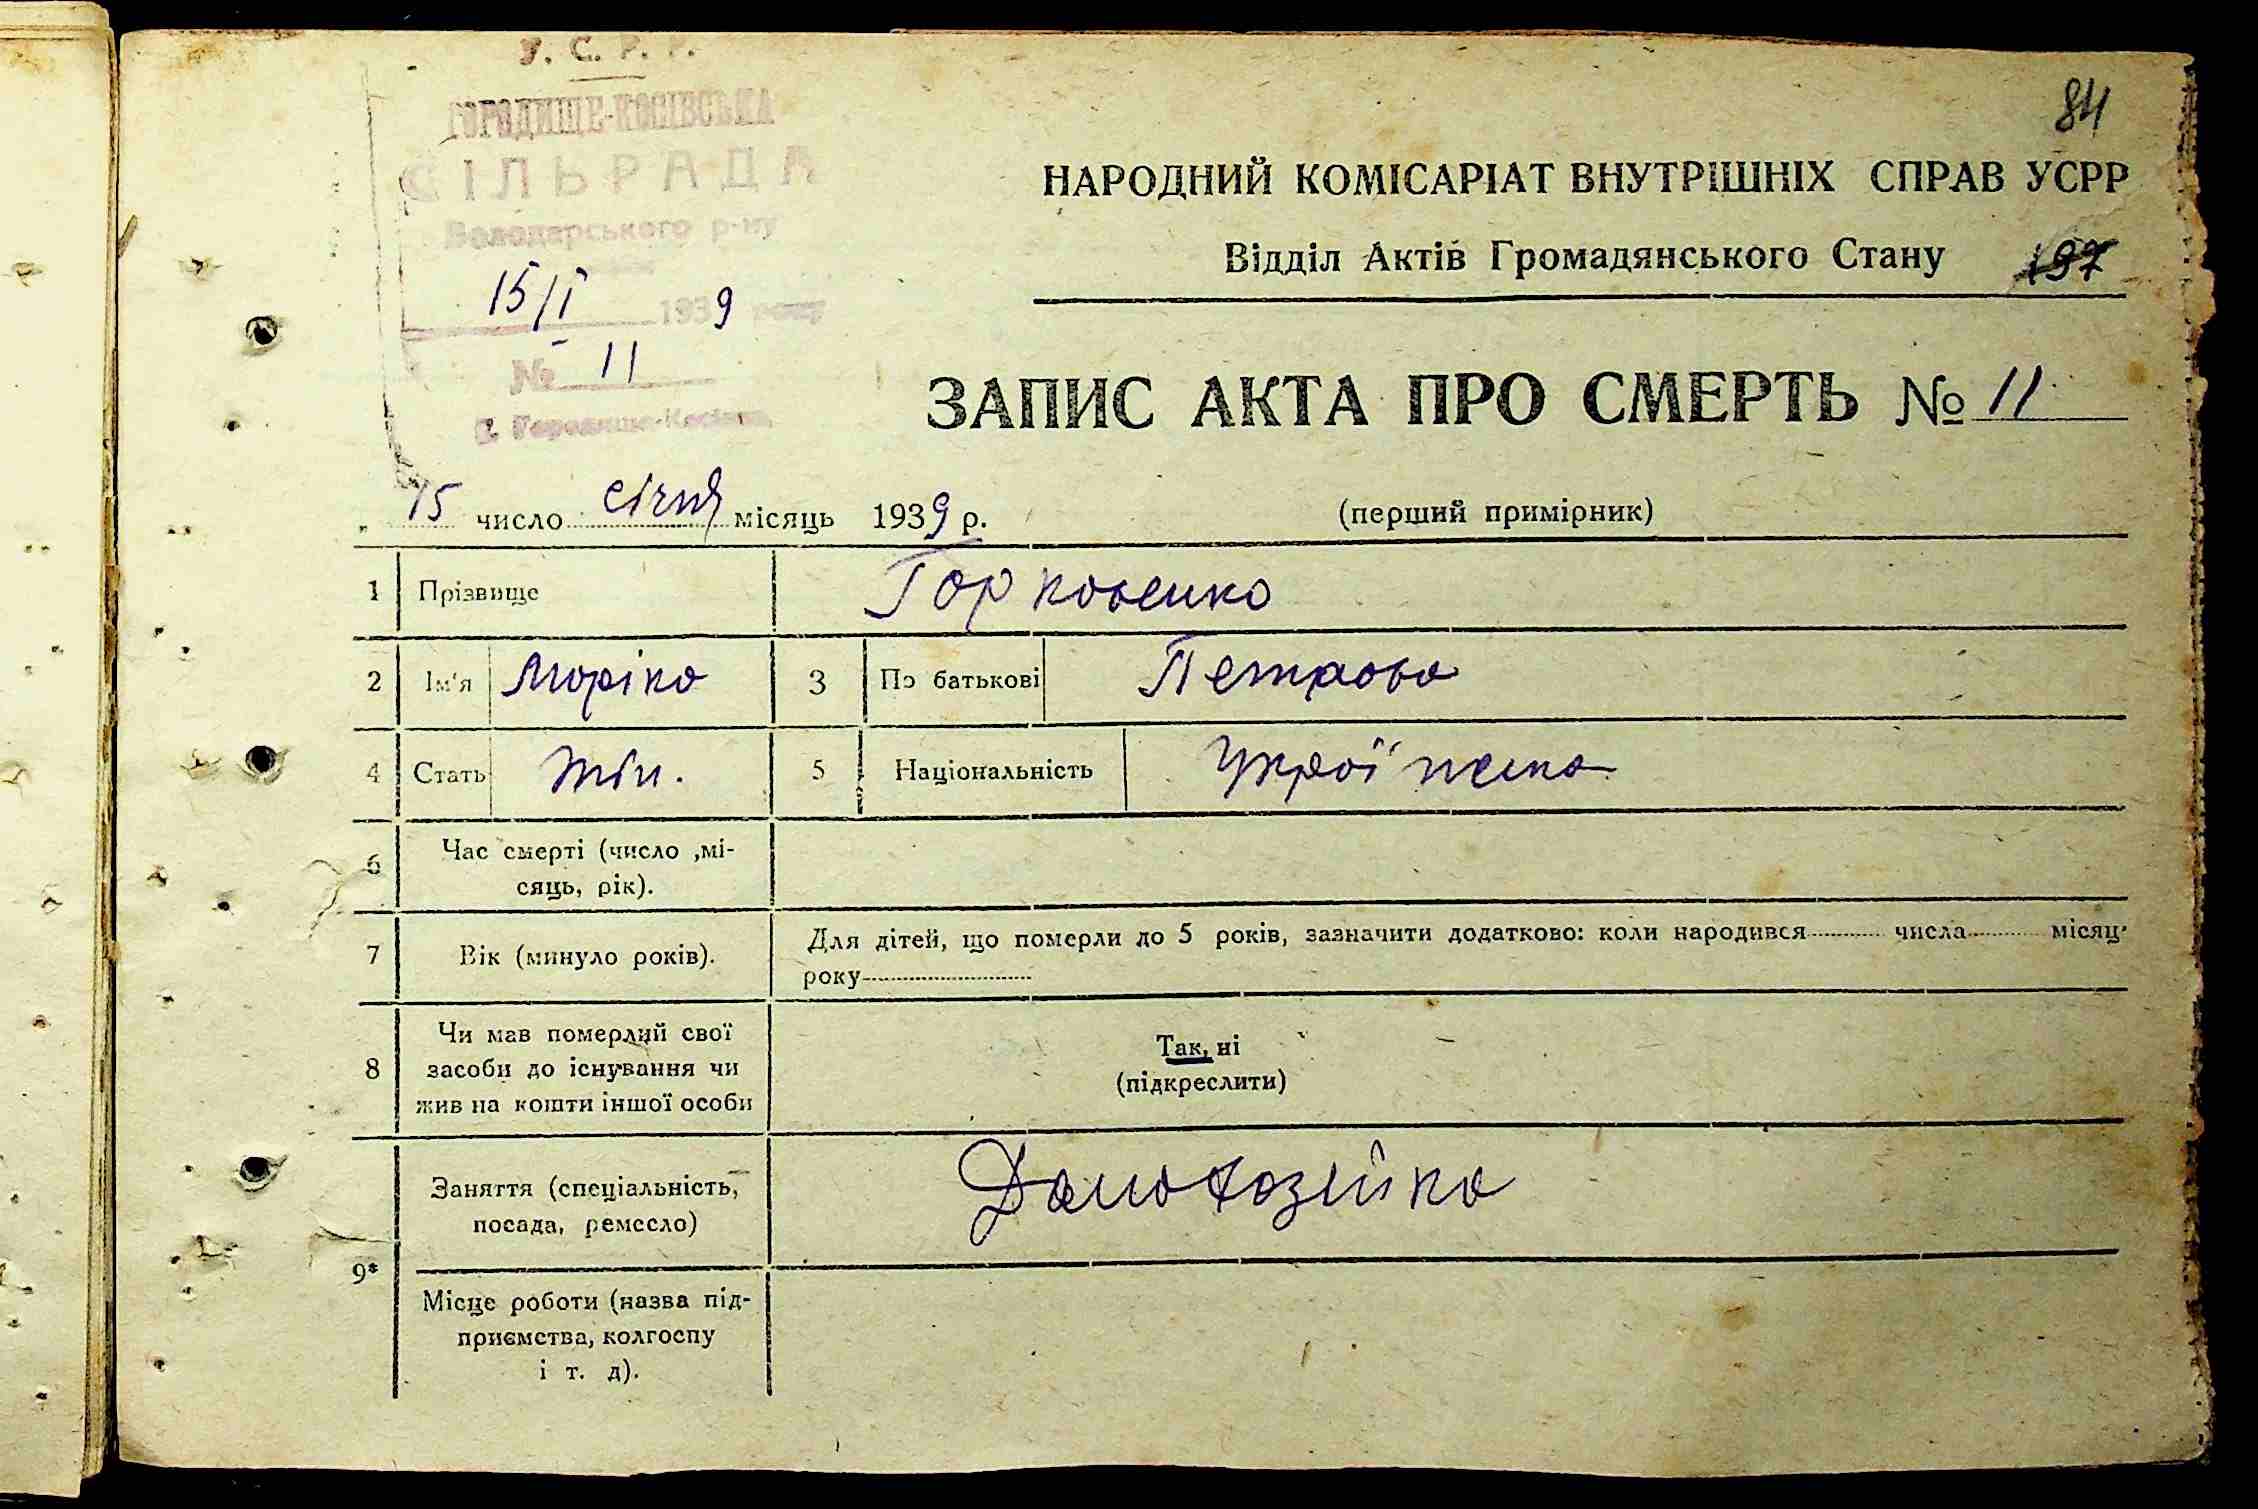 У. С. Р. Р.
ГОРОДИЩЕ-КОСІВСЬКА
СІЛЬРАДА
Володарського р-ну
15/I 1939 року
№ 11
с. Городище-Косівка
84
НАРОДНИЙ КОМІСАРІАТ ВНУТРІШНІХ СПРАВ УСРР
Відділ Актів Громадянського Стану 197
ЗАПИС АКТА ПРО СМЕРТЬ № 11
„ 15 число січня місяць 1939 р. (перший примірник)
1 Прізвище
2 Ім'я Моріка 3 По батькові Петрова
4 Стать жін. 5 Національність Україпска
6 Час смерті (число ,мі-
сяць, рік).
7 Вік (минуло років). Для дітей, що померли до 5 років, зазначити додатково: коли народився числа місяц
року
8 Чи мав померлий свої
засоби до існування чи
жив на кошти іншої особи
Так, ні
(підкреслити)
9*
Заняття (спеціальність,
посада, ремесло)
Домохозяйка
Місце роботи (назва під-
приємства, колгоспу
і т. д).